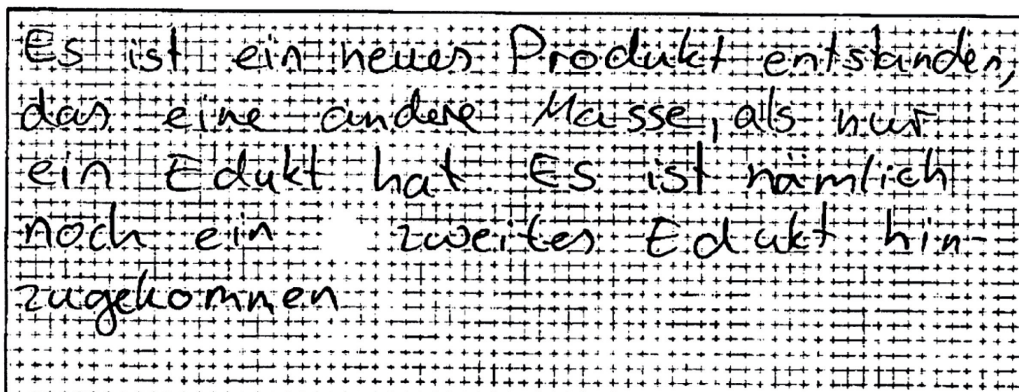 Es ist ein neues Produkt entstanden,
das eine andere Masse, als nur
ein Edukt hat. Es ist nämlich
noch ein zweites Edukt hin-
zugekommen